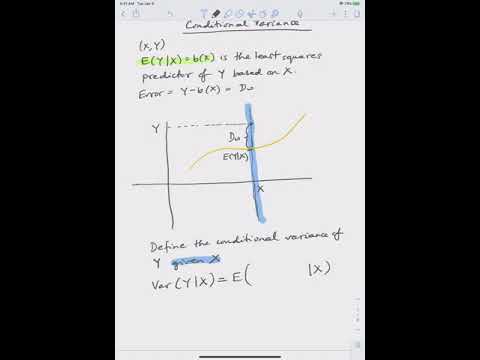 Conditional Variance
(X,Y)
E(Y|X) = b(X) is the least squares
predictor of Y based on X.
Error = Y-b(X) = Dw
Y
Dw
E(Y|X)
X
Define the conditional variance of
Y given X
Var(Y|X) = E( |X)